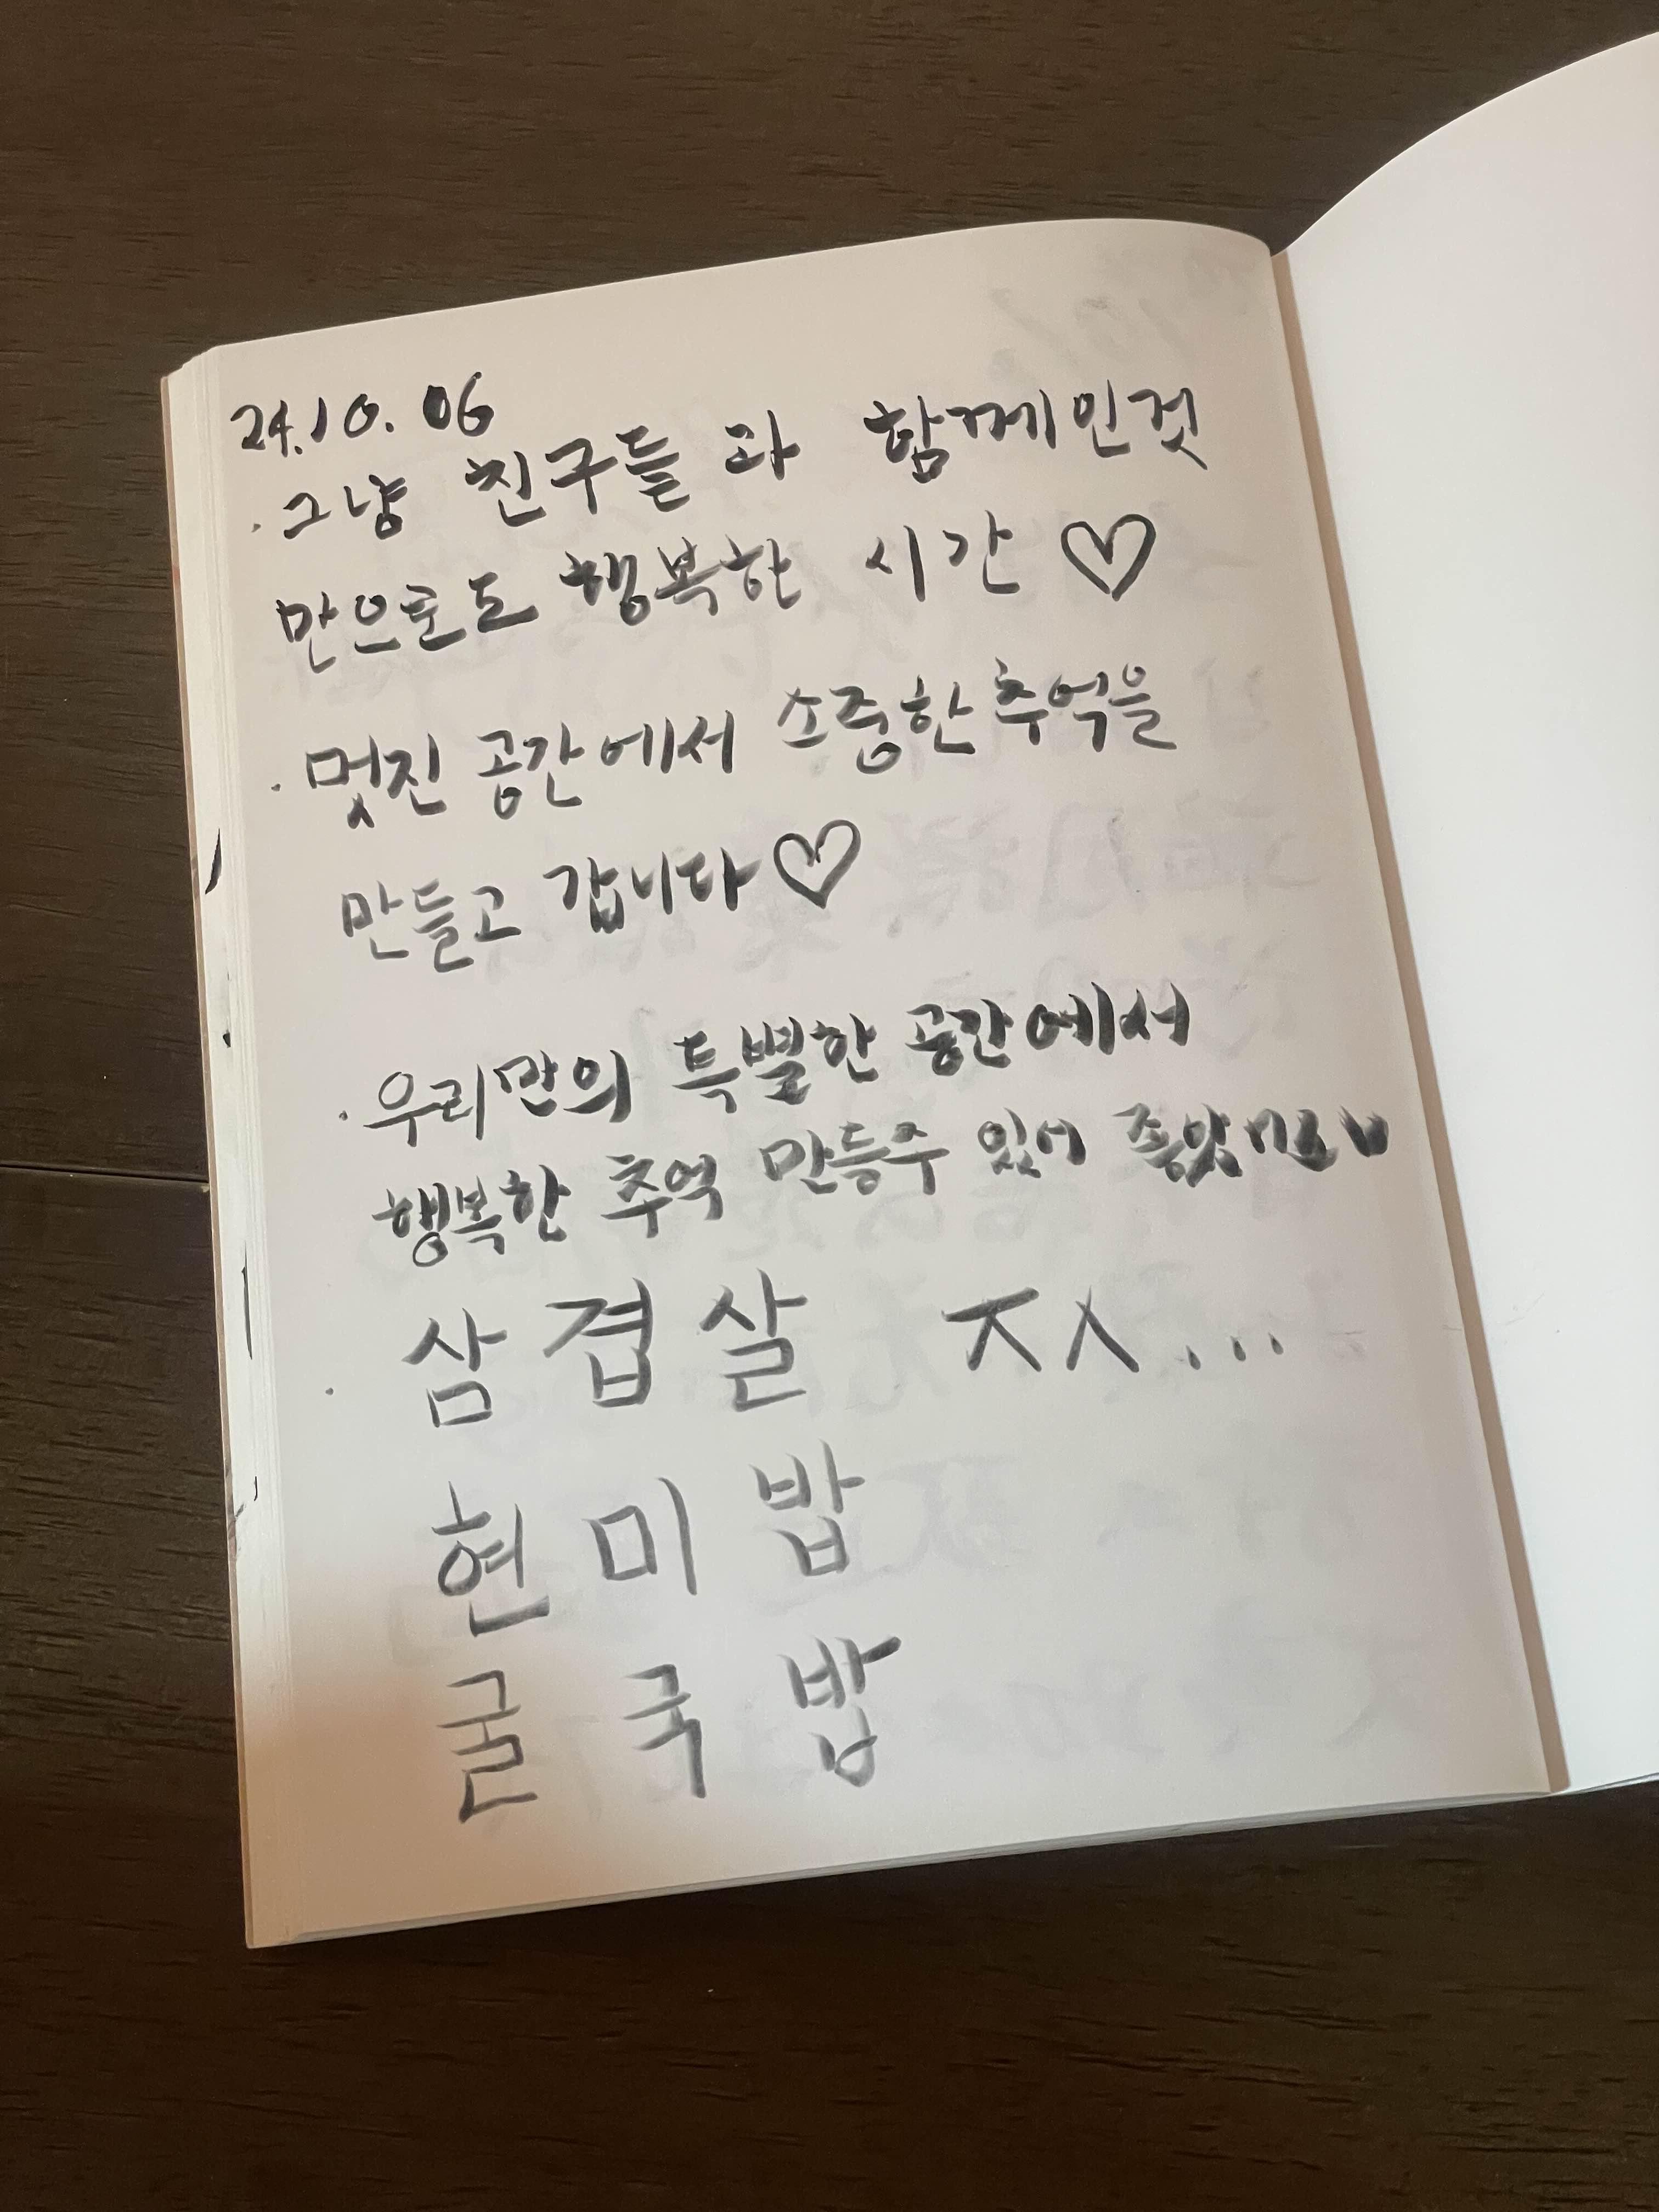 24.10.06
· 그냥 친구들 과 함께인것
만으로도 행복한 시간 ♡
· 멋진 공간에서 소중한 추억을
만들고 갑니다 ♡
· 우리만의 특별한 공간에서
행복한 추억 만들수 있어
· 삼겹살 ㅈㅅ...
현미밥
굴국밥